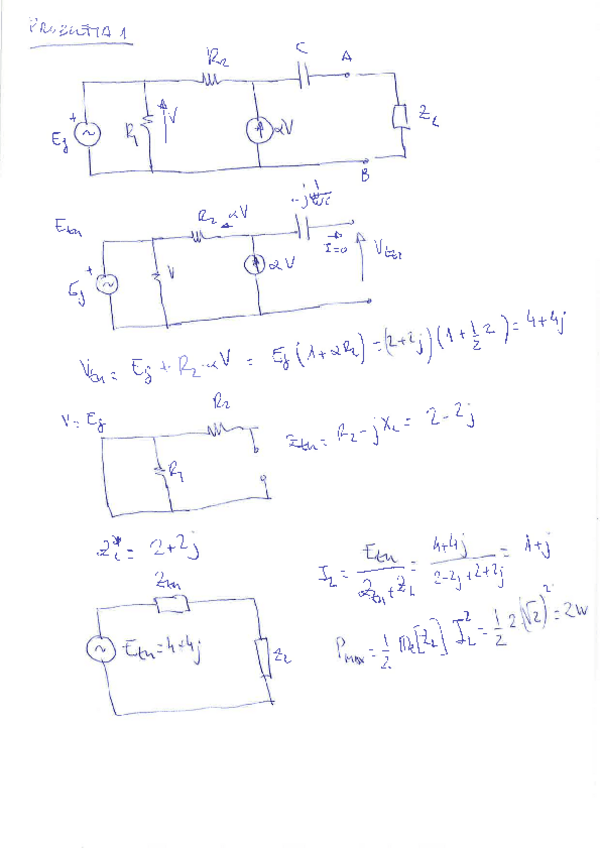 PROBLEMA 1
R₂ C A
+ Eg R₁ V αV Z_L
B
Eth R₂ αV -j 1/ωC
+ Eg V αV I=0 Vth
Vth = Eg + R₂·αV = Eg (1+αR₂) = (2+2j)(1+½2) = 4+4j
V = Eg R₂
R₁ Zth = R₂ - jX_c = 2-2j
Z_L* = 2+2j
I_L = Eth / (Zth + Z_L) = (4+4j) / (2-2j+2+2j) = 1+j
Zth
Eth = 4+4j Z_L
Pmax = ½ Re[Z_L] I_L² = ½ 2 (√2)² = 2W